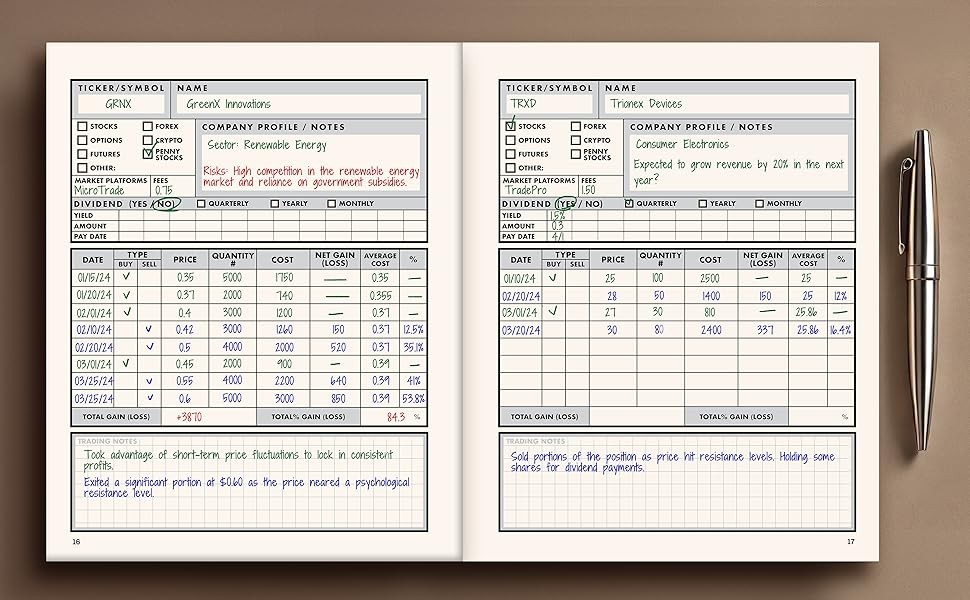 TICKER/SYMBOL NAME
GRNX GreenX Innovations
STOCKS FOREX COMPANY PROFILE / NOTES
OPTIONS CRYPTO Sector: Renewable Energy
FUTURES PENNY STOCKS
OTHER: Risks: High competition in the renewable energy
market and reliance on government subsidies.
MARKET PLATFORMS FEES
MicroTrade 0.75
DIVIDEND (YES / NO) QUARTERLY YEARLY MONTHLY
YIELD
AMOUNT
PAY DATE
DATE TYPE BUY SELL PRICE QUANTITY # COST NET GAIN (LOSS) AVERAGE COST %
01/15/24 ✓ 0.35 5000 1750 — 0.35 —
01/20/24 ✓ 0.37 2000 740 — 0.355 —
02/01/24 ✓ 0.4 3000 1200 — 0.37 —
02/10/24 ✓ 0.42 3000 1260 150 0.37 12.5%
02/20/24 ✓ 0.5 4000 2000 520 0.37 35.1%
03/01/24 ✓ 0.45 2000 900 — 0.39 —
03/25/24 ✓ 0.55 4000 2200 640 0.39 41%
03/25/24 ✓ 0.6 5000 3000 850 0.39 53.8%
TOTAL GAIN (LOSS) +3870 TOTAL% GAIN (LOSS) 84.3 %
TRADING NOTES
Took advantage of short-term price fluctuations to lock in consistent
profits.
Exited a significant portion at $0.60 as the price neared a psychological
resistance level.
16
TICKER/SYMBOL NAME
TRXD Trionex Devices
STOCKS FOREX COMPANY PROFILE / NOTES
OPTIONS CRYPTO Consumer Electronics
FUTURES PENNY STOCKS Expected to grow revenue by 20% in the next
OTHER: year?
MARKET PLATFORMS FEES
TradePro 1.50
DIVIDEND (YES / NO) QUARTERLY YEARLY MONTHLY
YIELD 1.5%
AMOUNT 0.3
PAY DATE 4/1
DATE TYPE BUY SELL PRICE QUANTITY # COST NET GAIN (LOSS) AVERAGE COST %
01/10/24 ✓ 25 100 2500 — 25 —
02/20/24 28 50 1400 150 25 12%
03/01/24 ✓ 27 30 810 — 25.86 —
03/20/24 30 80 2400 337 25.86 16.4%
TOTAL GAIN (LOSS) TOTAL% GAIN (LOSS) %
TRADING NOTES
Sold portions of the position as price hit resistance levels. Holding some
shares for dividend payments.
17